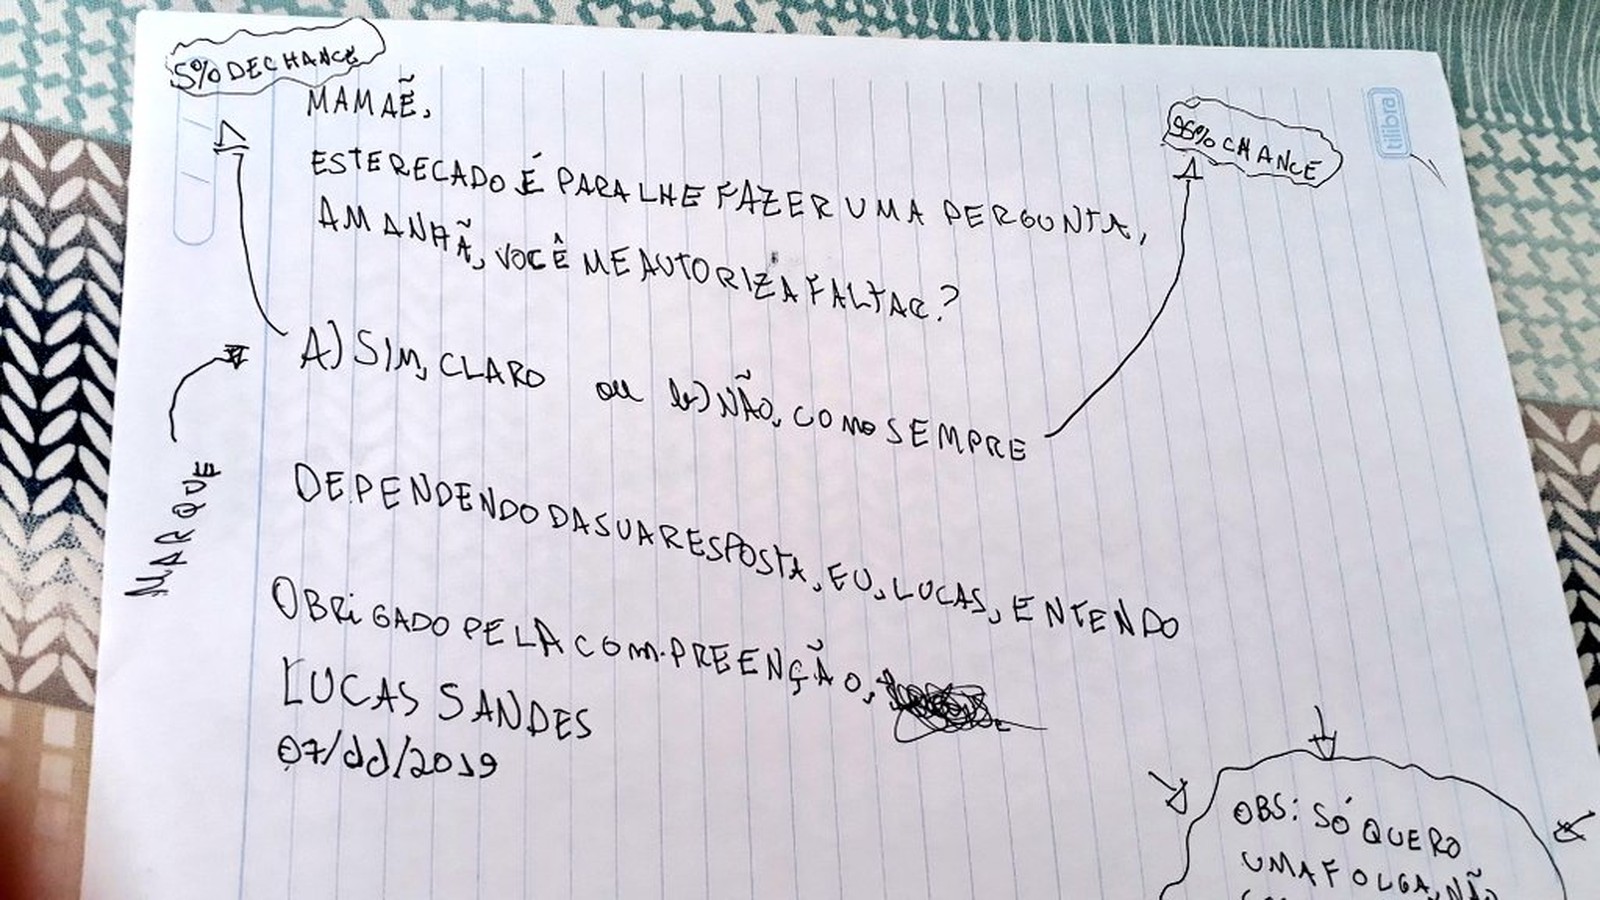 5% DE CHANCE
MAMAẼ,
95% CHANCE
tilibra
ESTE RECADO É PARA LHE FAZER UMA PERGUNTA,
AMANHÃ, VOCÊ ME AUTORIZA FALTAR?
A) SIM, CLARO ou b) NÃO, COMO SEMPRE
MARQUE
DEPENDENDO DA SUA RESPOSTA, EU, LUCAS, ENTENDO
OBRIGADO PELA COMPREENÇÃO,
LUCAS SANDES
07/11/2019
OBS: SÓ QUERO
UMA FOLGA, NÃO